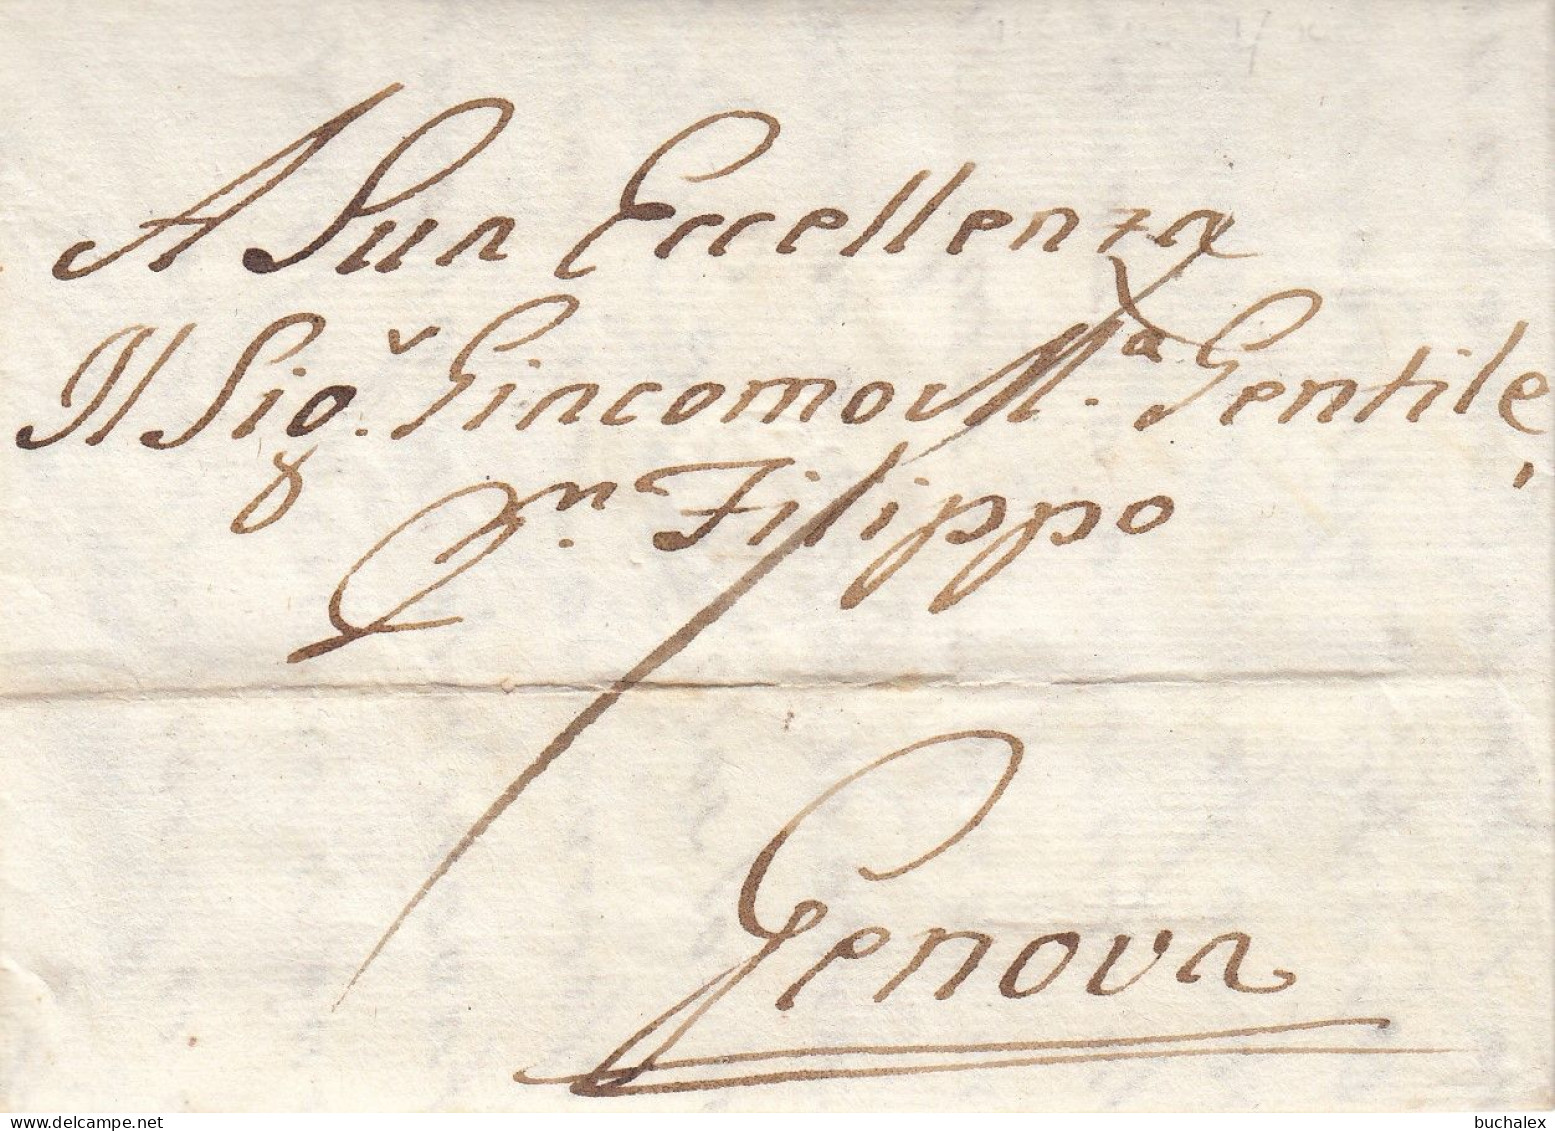 A Sua Eccellenza
Il Sig.r Giacomo M.a Gentile
q.m Filippo
Genova
www.delcampe.net
buchalex